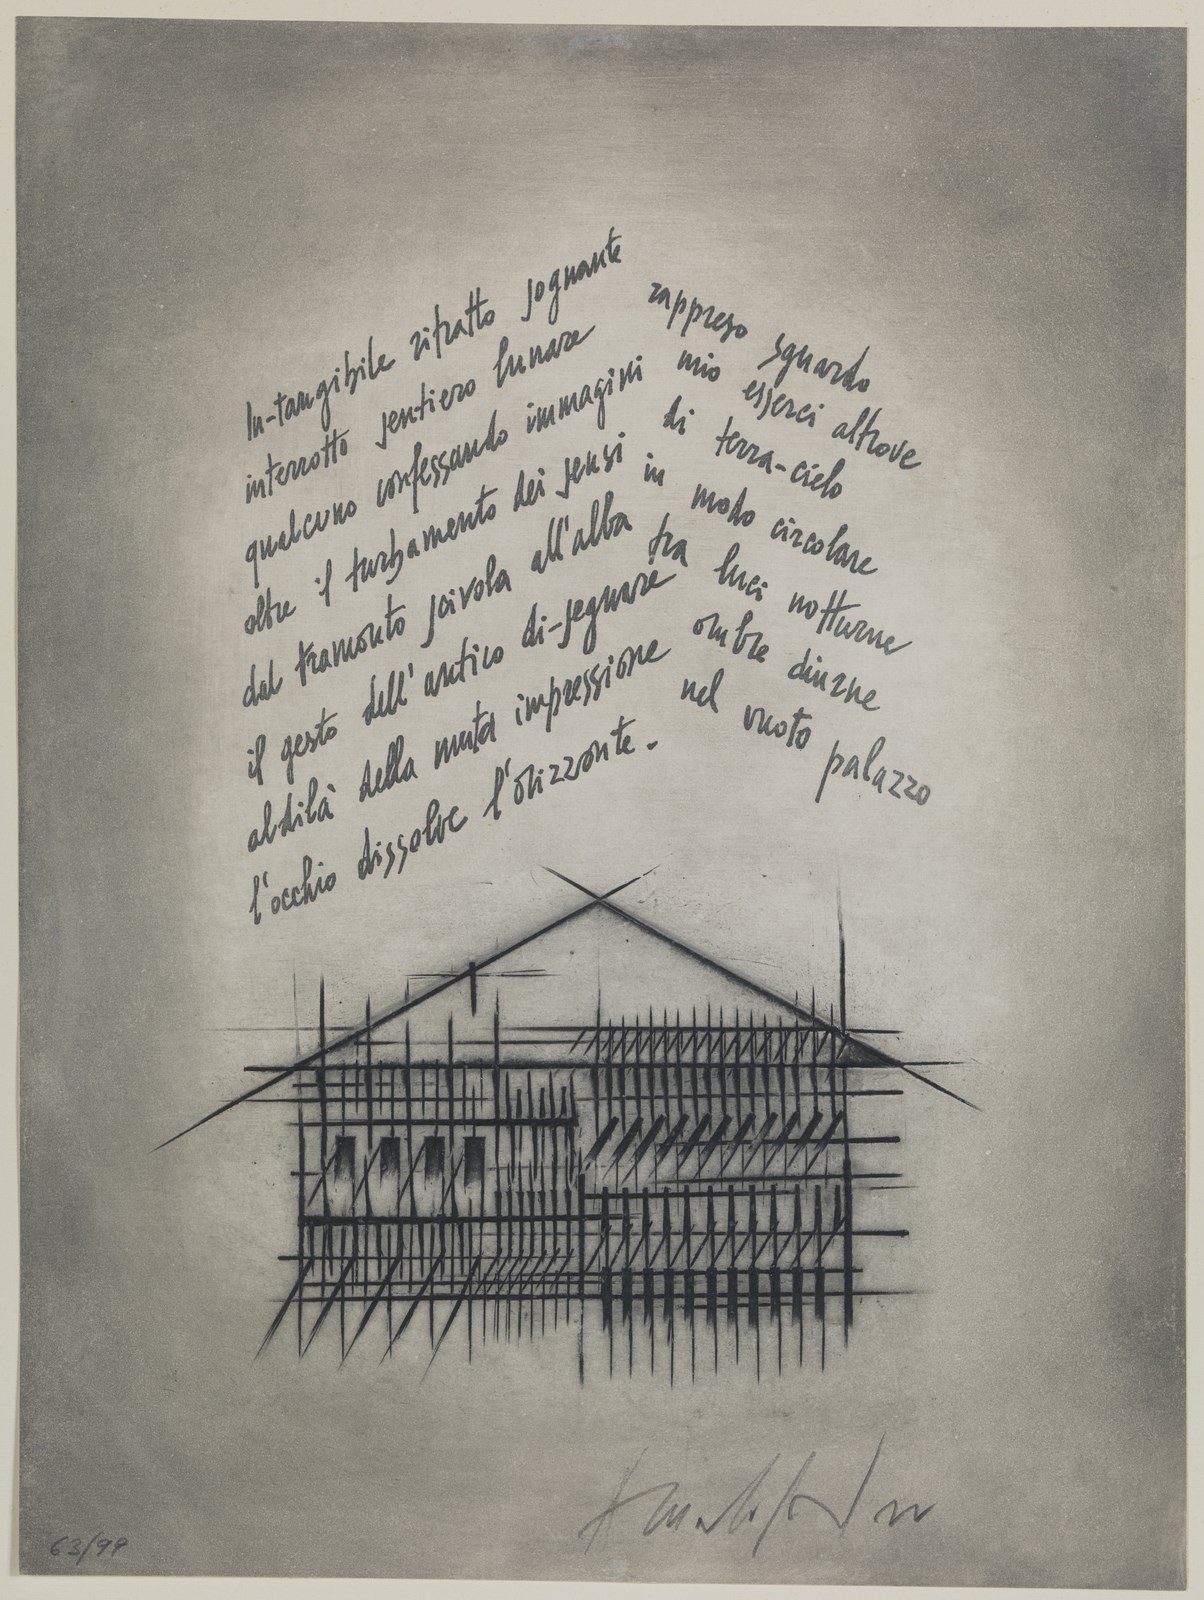 In-tangibile ritratto sognante rappreso sguardo
interrotto sentiero lunare mio esserci altrove
qualcuno confessando immagini di terra-cielo
oltre il turbamento dei sensi in modo circolare
dal tramonto scivola all'alba tra luci notturne
il gesto dell'antico di-segnare ombre diurne
aldilà della muta impressione nel vuoto palazzo
l'occhio dissolve l'orizzonte.
63/99